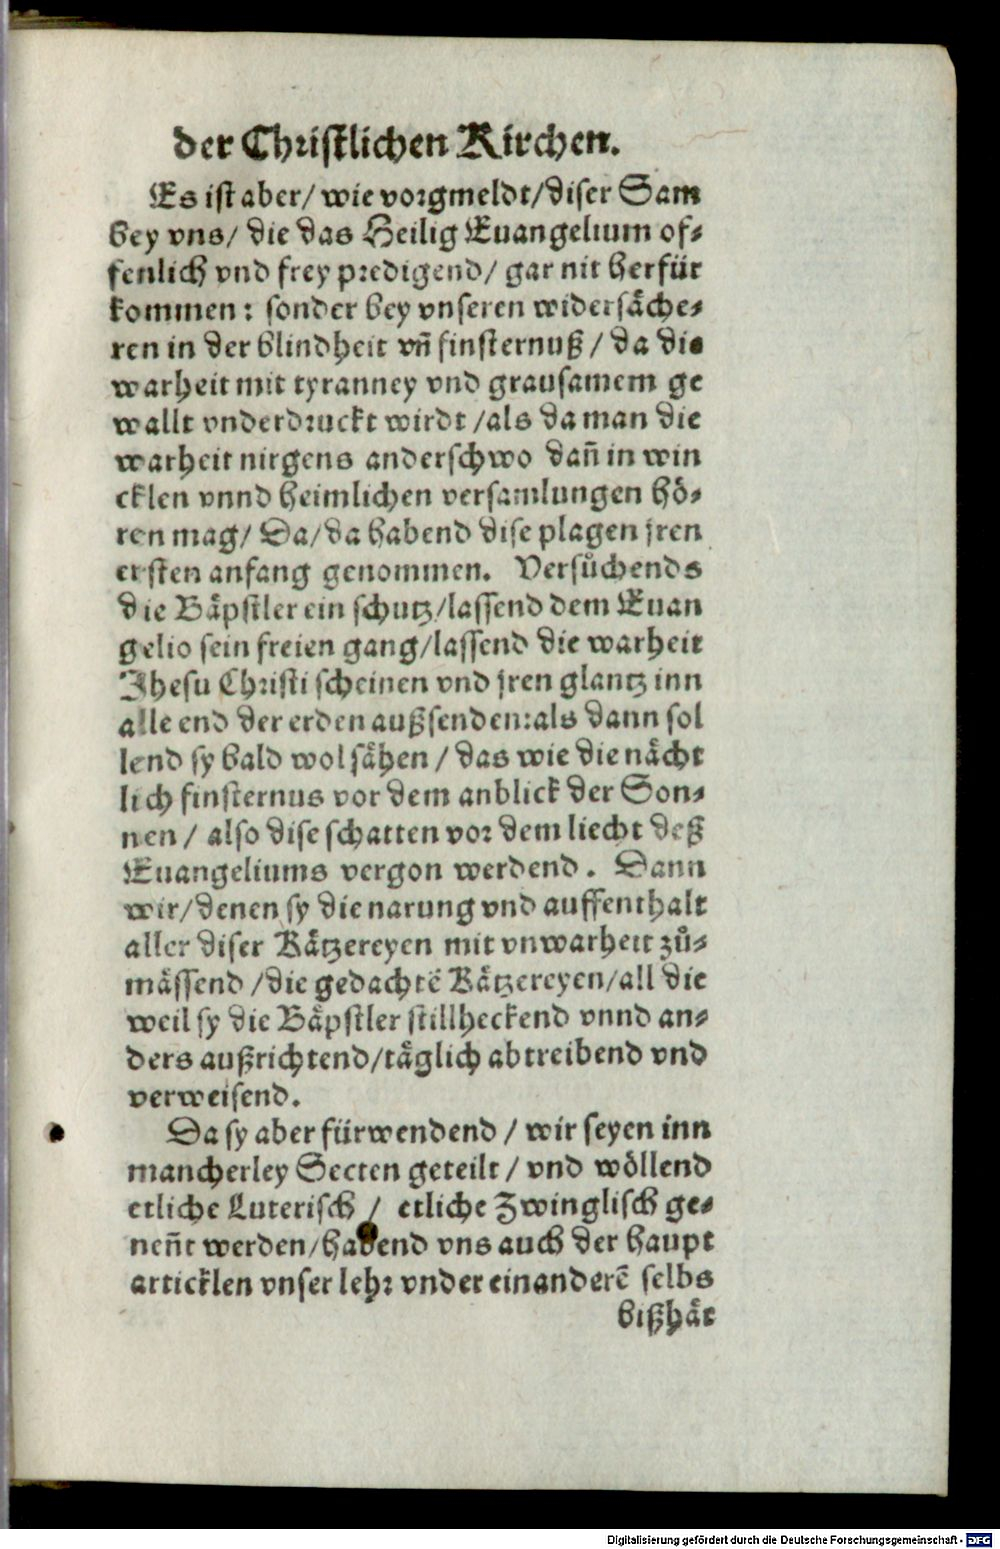 der Christlichen Kirchen.
Es ist aber/ wie vorgmeldt/ diser Sam
bey vns/ die das Heilig Euangelium of⸗
fenlich vnd frey predigend/ gar nit herfür
kommen: sonder bey vnseren widersaͤche⸗
ren in der blindheit vñ finsternuß/ da die
warheit mit tyranney vnd grausamem ge
wallt vnderdruckt wirdt/ als da man die
warheit nirgens anderschwo dañ in win
cklen vnnd heimlichen versamlungen hoͤ⸗
ren mag/ Da/ da habend dise plagen jren
ersten anfang genommen. Versuͦchends
die Baͤpstler ein schutz/ lassend dem Euan
gelio sein freien gang/ lassend die warheit
Jhesu Christi scheinen vnd jren glantz inn
alle end der erden außsenden: als dann sol
lend sy bald wol saͤhen/ das wie die naͤcht
lich finsternus vor dem anblick der Son⸗
nen/ also dise schatten vor dem liecht deß
Euangeliums vergon werdend. Dann
wir/ denen sy die narung vnd auffenthalt
aller diser Kaͤtzereyen mit vnwarheit zuͦ⸗
maͤssend/ die gedachtẽ Kaͤtzereyen/ all die
weil sy die Baͤpstler stillheckend vnnd an⸗
ders außrichtend/ taͤglich abtreibend vnd
verweisend.
Da sy aber fürwendend/ wir seyen inn
mancherley Secten geteilt/ vnd woͤllend
etliche Luterisch/ etliche Zwinglisch ge⸗
neñt werden/ habend vns auch der haupt
articklen vnser lehr vnder einanderẽ selbs
bißhaͤr
Digitalisierung gefördert durch die Deutsche Forschungsgemeinschaft - DFG